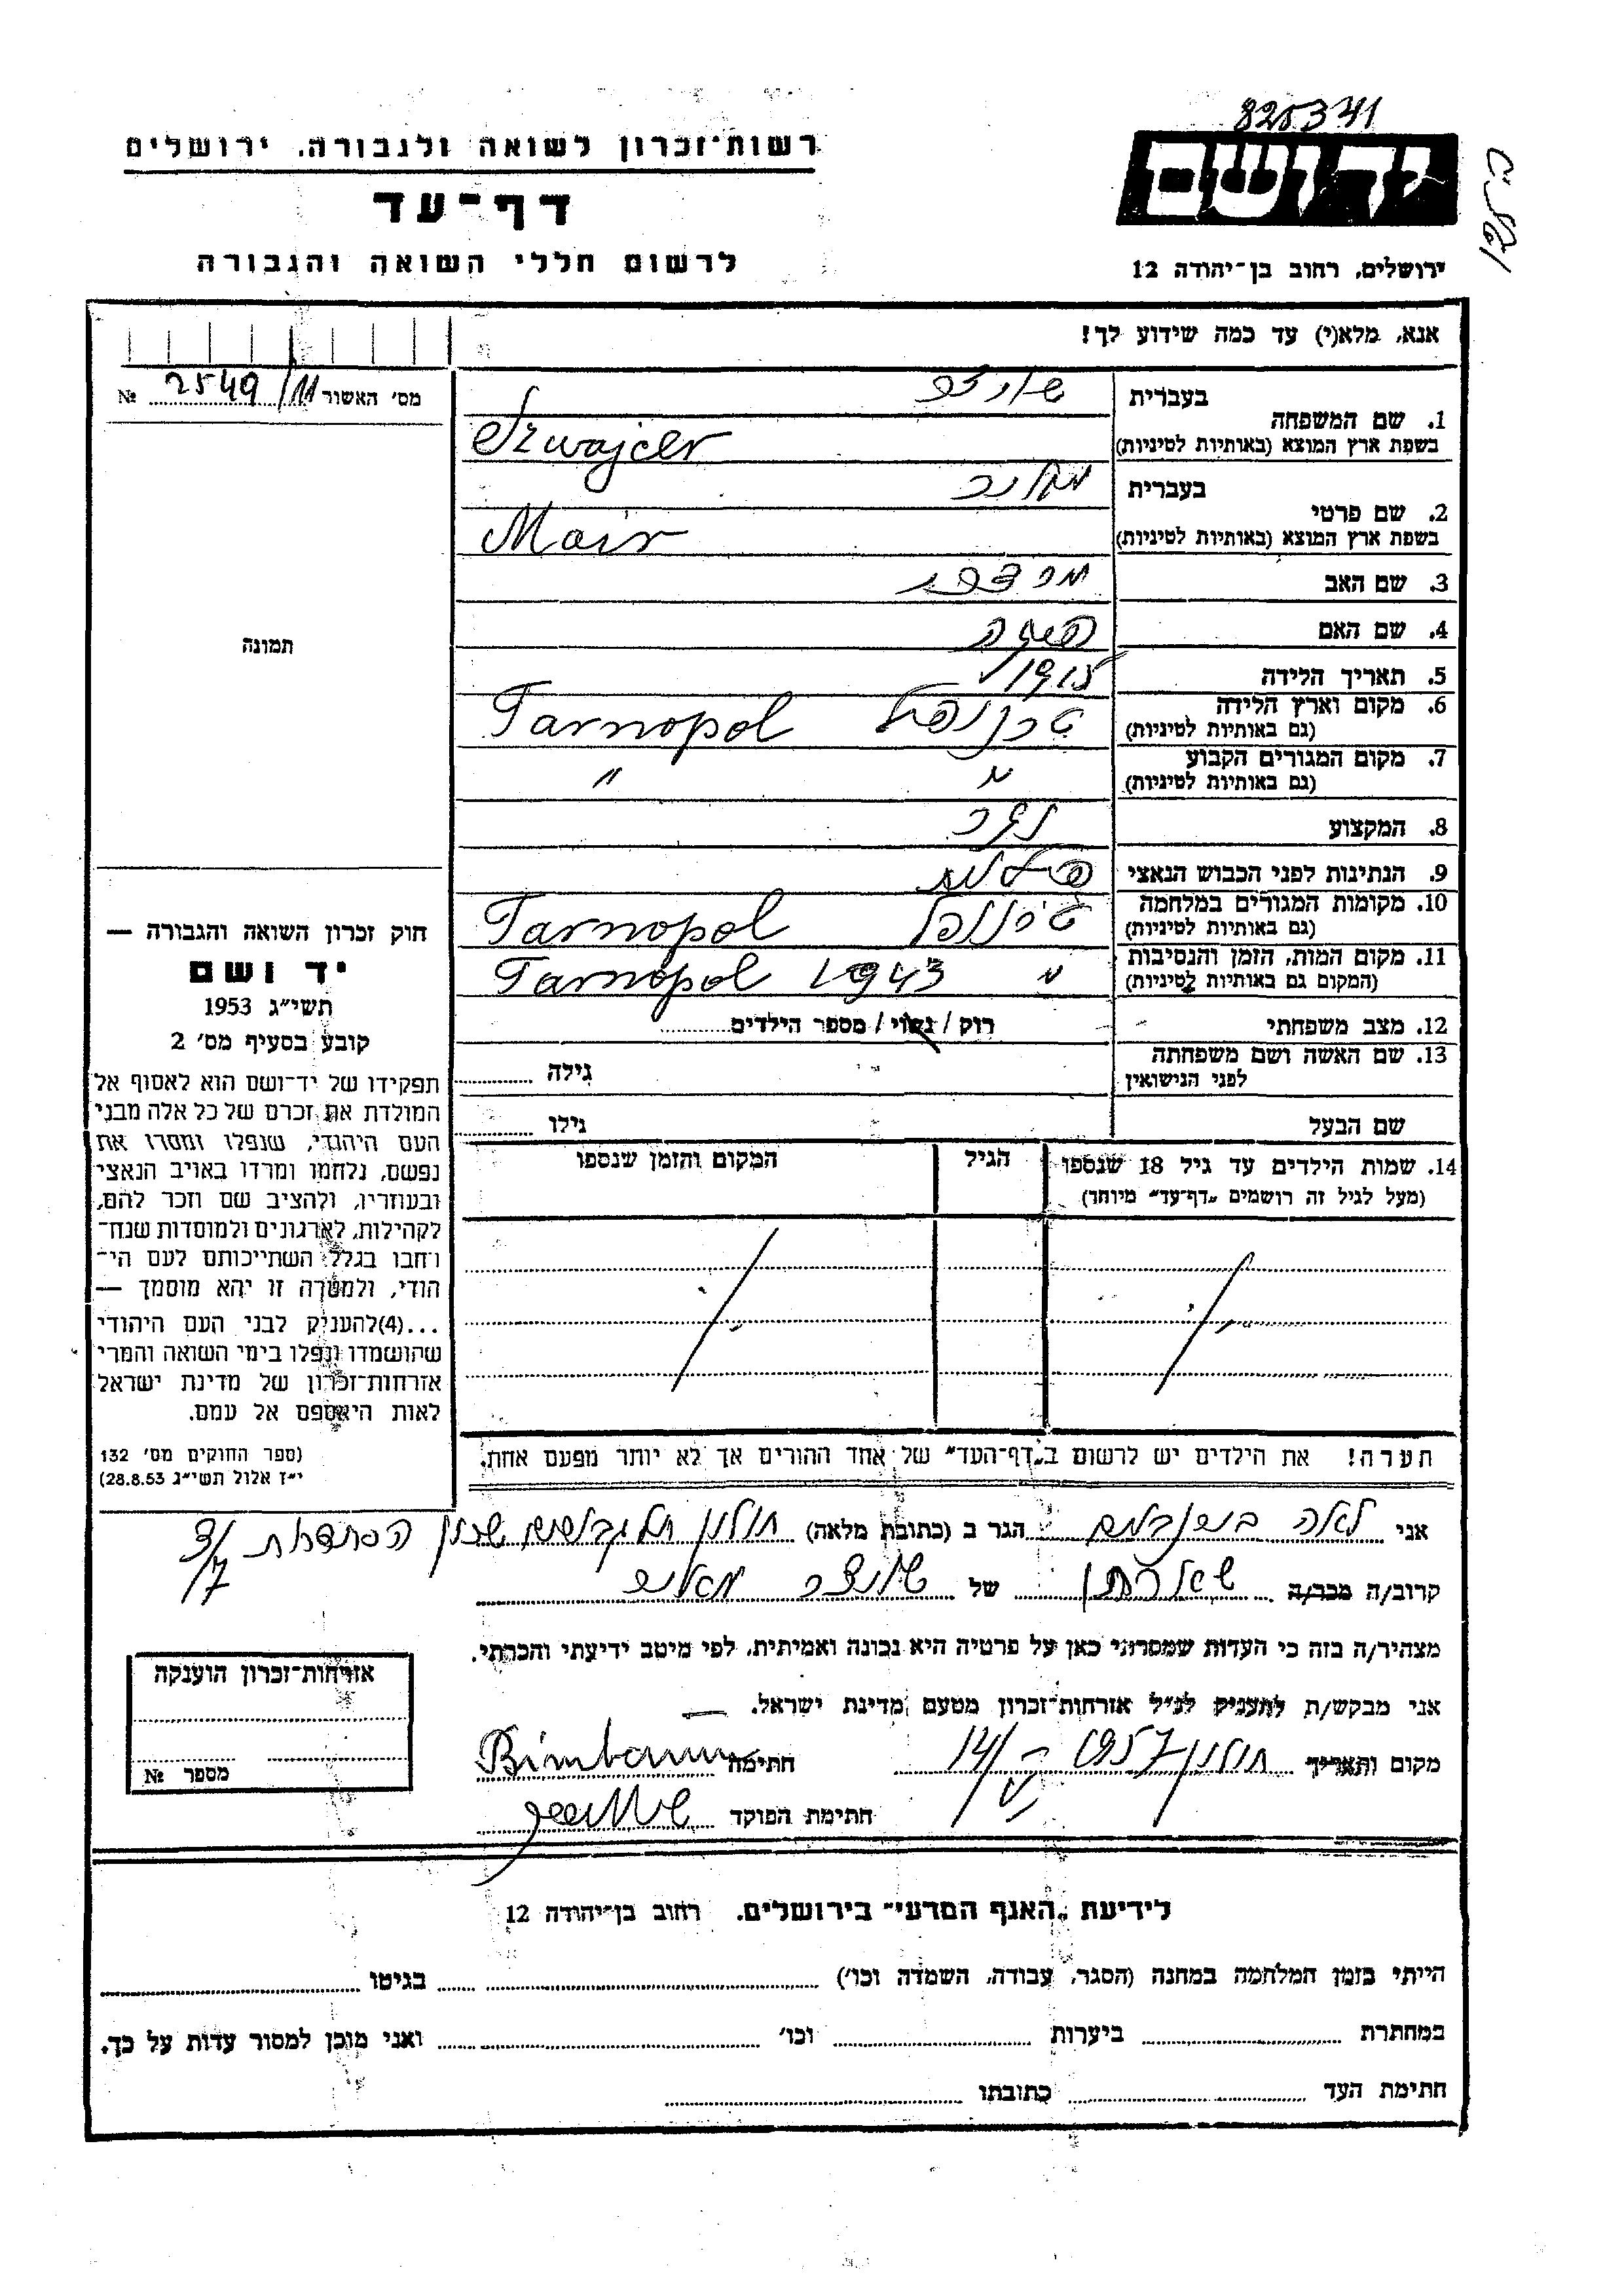 825341
רשות־זכרון לשואה ולגבורה. ירושלים
יד ושם
דף־עד
לרשום חללי השואה והגבורה
ירושלים, רחוב בן־יהודה 12
אנא, מלא(י) עד כמה שידוע לך!
מס׳ האשור 2549/11 №
1. שם המשפחה
בעברית
בשפת ארץ המוצא (באותיות לטיניות) Szwajcer
2. שם פרטי
בעברית
בשפת ארץ המוצא (באותיות לטיניות) Mair
3. שם האב
4. שם האם
תמונה
5. תאריך הלידה 1915
6. מקום וארץ הלידה
(גם באותיות לטיניות) טרנופול Tarnopol
7. מקום המגורים הקבוע
(גם באותיות לטיניות) " "
8. המקצוע
9. הנתינות לפני הכבוש הנאצי
10. מקומות המגורים במלחמה
(גם באותיות לטיניות) טרנופול Tarnopol
11. מקום המות, הזמן והנסיבות
(המקום גם באותיות לטיניות) " Tarnopol 1943
12. מצב משפחתי רוק / נשוי / מספר הילדים
13. שם האשה ושם משפחתה
לפני הנישואין גילה
שם הבעל גילו
14. שמות הילדים עד גיל 18 שנספו הגיל המקום והזמן שנספו
(מעל לגיל זה רושמים „דף־עד״ מיוחד)
חוק זכרון השואה והגבורה —
יד ושם
תשי״ג 1953
קובע בסעיף מס׳ 2
תפקידו של יד־ושם הוא לאסוף אל
המולדת את זכרם של כל אלה מבני
העם היהודי, שנפלו ומסרו את
נפשם, נלחמו ומרדו באויב הנאצי
ובעוזריו, ולהציב שם וזכר להם,
לקהילות, לארגונים ולמוסדות שנח־
רבו בגלל השתייכותם לעם הי־
הודי, ולמטרה זו יהא מוסמך —
...(4)להעניק לבני העם היהודי
שהושמדו ונפלו בימי השואה והמרי
אזרחות־זכרון של מדינת ישראל
לאות היאספם אל עמם.
(ספר החוקים מס׳ 132
י״ז אלול תשי״ג 28.8.53)
הערה! את הילדים יש לרשום ב„דף־העד״ של אחד ההורים אך לא יותר מפעם אחת.
אני לאה בירנבוים הגר ב (כתובת מלאה) חולון שכון הסתדרות
קרוב/ה מכר/ה של
מצהיר/ה בזה כי העדות שמסרתי כאן על פרטיה היא נכונה ואמיתית, לפי מיטב ידיעתי והכרתי.
אני מבקש/ת להעניק לנ״ל אזרחות־זכרון מטעם מדינת ישראל.
מקום ותאריך חולון 1957 חתימה Birnbaum
חתימת הפוקד
אזרחות־זכרון הוענקה
מספר №
לידיעת „האגף המדעי״ בירושלים, רחוב בן־יהודה 12
הייתי בזמן המלחמה במחנה (הסגר, עבודה, השמדה וכו׳) בגיטו
במחתרת ביערות וכו׳ ואני מוכן למסור עדות על כך.
חתימת העד כתובתו